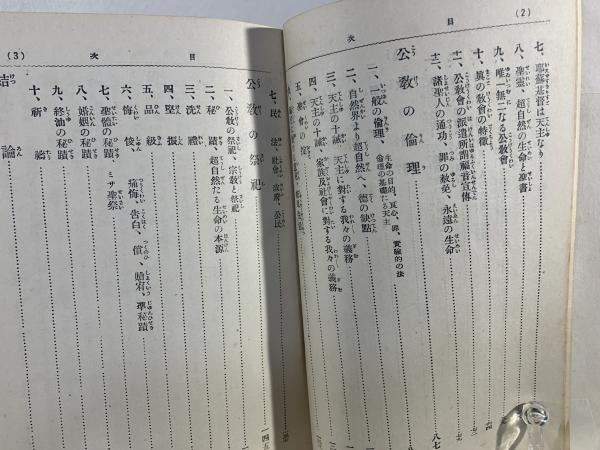 (2)
目
次
七、耶蘇基督は天主なり
八、聖霊、超自然の生命と聖書
九、唯一無二なる公教會
十、眞の教會の特徴
十一、公教會の
十二、諸聖人の通功、罪の赦免、永遠の生命
八七
公教の倫理
一、一般の倫理、
生命の目的、良心、罪、實驗的の法
倫理の基礎たる天主
二、自然界より超自然へ、德の缺點
三、天主の十誡、天主に對する我々の義務
四、天主の十誡、家族及社會に對する我々の義務
五、
七、民法、社會、政府、公民
(3)
目
次
公教の祭祀
一、公教の祭祀、宗教と祭祀
二、秘蹟、超自然たる生命の本源
三、洗禮
四、堅振
五、品級
六、悔悛
痛悔、告白、償、贖宥、準秘蹟
七、聖體の秘蹟
ミサ聖祭
八、婚姻の秘蹟
九、終油の秘蹟
十、祈禱
結論
一四五